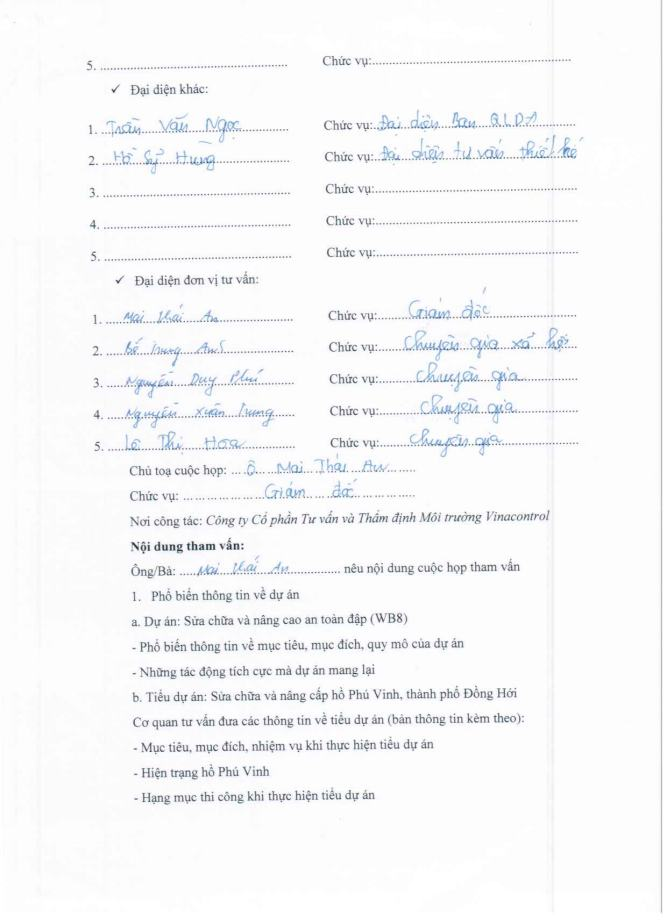 5. ........................................ Chức vụ:........................................
✓ Đại diện khác:
1. Trần Văn Ngọc Chức vụ: Đại diện Ban QLDA
2. Hồ Sỹ Hùng Chức vụ: Đại diện tư vấn thiết kế
3. ........................................ Chức vụ:........................................
4. ........................................ Chức vụ:........................................
5. ........................................ Chức vụ:........................................
✓ Đại diện đơn vị tư vấn:
1. Mai Thái An Chức vụ: Giám đốc
2. Trung Chức vụ: Chuyên gia xã hội
3. Nguyễn Duy Phú Chức vụ: Chuyên gia
4. Nguyễn Xuân Trung Chức vụ: Chuyên gia
5. Lê Thị Hoa Chức vụ: Chuyên gia
Chủ toạ cuộc họp: Ô. Mai Thái An
Chức vụ: Giám đốc
Nơi công tác: Công ty Cổ phần Tư vấn và Thẩm định Môi trường Vinacontrol
Nội dung tham vấn:
Ông/Bà: Mai Thái An nêu nội dung cuộc họp tham vấn
1. Phổ biến thông tin về dự án
a. Dự án: Sửa chữa và nâng cao an toàn đập (WB8)
- Phổ biến thông tin về mục tiêu, mục đích, quy mô của dự án
- Những tác động tích cực mà dự án mang lại
b. Tiểu dự án: Sửa chữa và nâng cấp hồ Phú Vinh, thành phố Đồng Hới
Cơ quan tư vấn đưa các thông tin về tiểu dự án (bản thông tin kèm theo):
- Mục tiêu, mục đích, nhiệm vụ khi thực hiện tiểu dự án
- Hiện trạng hồ Phú Vinh
- Hạng mục thi công khi thực hiện tiểu dự án